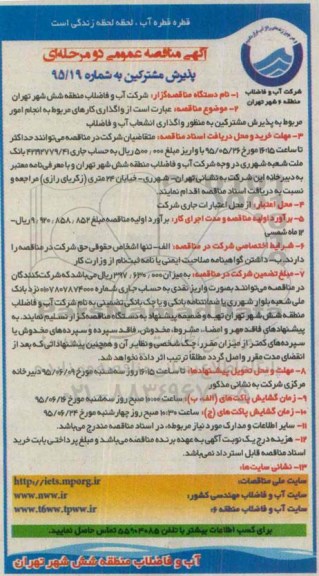 قطره قطره آب ، لحظه لحظه زندگی است
آگهی مناقصه عمومی دو مرحله‌ای
پذیرش مشترکین به شماره ۹۵/۱۹
شرکت آب و فاضلاب
منطقه ۶ شهر تهران
۱- نام دستگاه مناقصه‌گزار: شرکت آب و فاضلاب منطقه شش شهر تهران
۲- موضوع مناقصه: عبارت است از واگذاری کارهای مربوط به انجام امور
مربوط به پذیرش مشترکین به منظور واگذاری انشعاب آب و فاضلاب
۳- مهلت خرید و محل دریافت اسناد مناقصه: متقاضیان شرکت در مناقصه می‌توانند حداکثر
تا ساعت ۱۶:۱۵ مورخ ۹۵/۰۵/۲۶ با واریز مبلغ ۵۰۰,۰۰۰ ریال به حساب جاری بانک
ملت شعبه شهرری در وجه شرکت آب و فاضلاب منطقه شش شهر تهران و با معرفی‌نامه معتبر
به دبیرخانه این شرکت به نشانی تهران- شهرری- خیابان ۲۴ متری (زکریای رازی) مراجعه و
نسبت به دریافت اسناد مناقصه اقدام نمایند.
۴- محل اعتبار: از محل اعتبارات جاری شرکت
۵- برآورد اولیه مناقصه و مدت اجرای کار: برآورد اولیه مناقصه مبلغ ریال-
۱۲ ماه شمسی
۶- شرایط اختصاصی شرکت در مناقصه: الف- تنها اشخاص حقوقی حق شرکت در مناقصه را
دارند. ب- داشتن گواهینامه صلاحیت ایمنی یا نامه ثبت‌نام از وزارت کار
۷- مبلغ تضمین شرکت در مناقصه: به میزان ریال می‌باشد که شرکت‌کنندگان
در مناقصه می‌توانند بصورت واریز نقدی به حساب جاری شماره نزد بانک
ملی شعبه بلوار شهرری یا ضمانتنامه بانکی و یا چک بانکی تضمینی به نام شرکت آب و فاضلاب
منطقه شش شهر تهران تهیه و ضمیمه پیشنهاد به دستگاه مناقصه‌گزار تسلیم نمایند. به
پیشنهادهای فاقد مهر و امضاء، مشروط، مخدوش، فاقد سپرده و سپرده‌های مخدوش یا
سپرده‌های کمتر از میزان مقرر، چک شخصی و نظایر آن و همچنین پیشنهاداتی که بعد از
انقضای مدت مقرر واصل گردد مطلقا ترتیب اثر داده نخواهد شد.
۸- مهلت و محل تحویل پیشنهادها: تا ساعت ۱۶:۱۵ روز سه‌شنبه مورخ ۹۵/۰۶/۰۹ دبیرخانه
مرکزی شرکت به نشانی مذکور
۹- زمان گشایش پاکت‌های (الف، ب): ساعت ۱۰:۰۰ صبح روز سه‌شنبه مورخ ۹۵/۰۶/۱۶
۱۰- زمان گشایش پاکت‌های (ج): ساعت ۱۰:۳۰ صبح روز چهارشنبه مورخ ۹۵/۰۶/۲۴
۱۱- سایر اطلاعات و مدارک مورد نیاز مربوطه، در اسناد مناقصه مندرج می‌باشد.
۱۲- هزینه درج یک نوبت آگهی به عهده برنده مناقصه می‌باشد و مبلغ پرداختی بابت خرید
اسناد مناقصه قابل استرداد نمی‌باشد.
۱۳- نشانی سایت‌ها:
سایت ملی مناقصات: http://iets.mporg.ir
سایت آب و فاضلاب مهندسی کشور: www.nww.ir
سایت آب و فاضلاب منطقه ۶: www.t6ww.tpww.ir
برای کسب اطلاعات بیشتر با تلفن ۵۵۹۰۳۰۸۵ تماس حاصل نمایید.
آب و فاضلاب منطقه شش شهر تهران